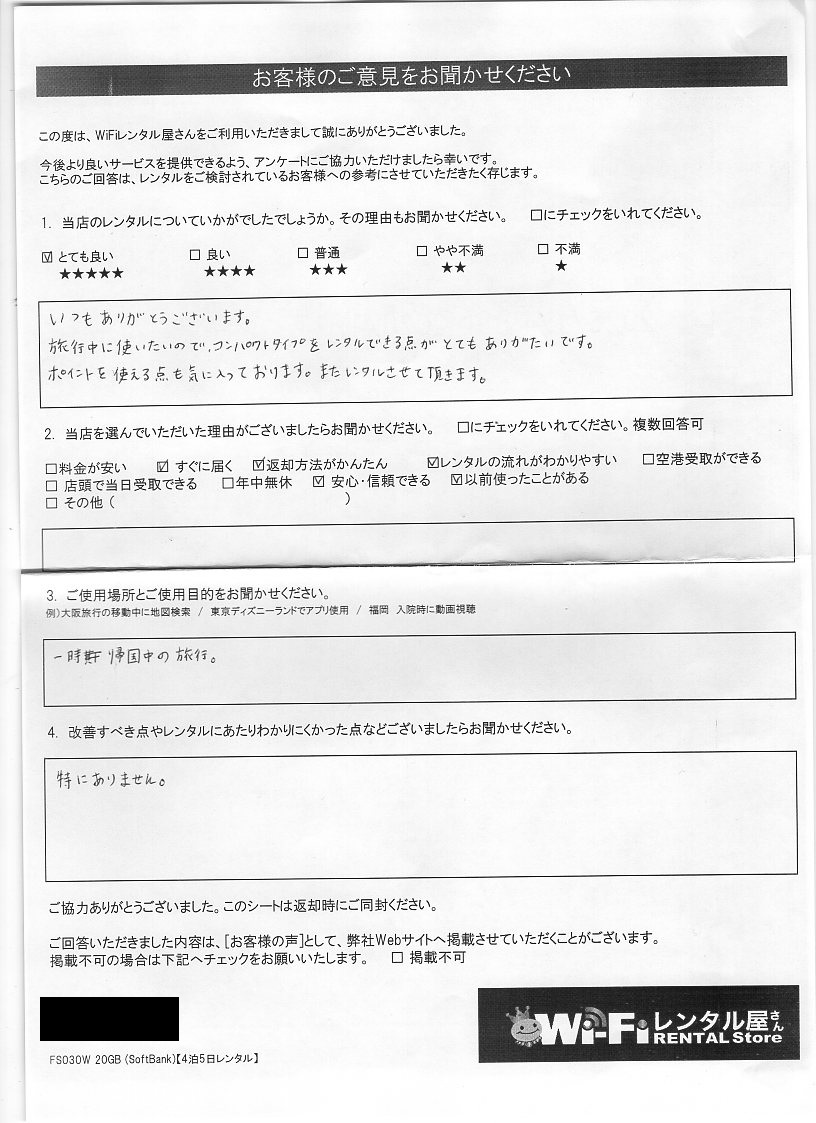 お客様のご意見をお聞かせください
この度は、WiFiレンタル屋さんをご利用いただきまして誠にありがとうございました。
今後より良いサービスを提供できるよう、アンケートにご協力いただけましたら幸いです。
こちらのご回答は、レンタルをご検討されているお客様への参考にさせていただきたく存じます。
1. 当店のレンタルについていかがでしたでしょうか。その理由もお聞かせください。 □にチェックをいれてください。
☑ とても良い □ 良い □ 普通 □ やや不満 □ 不満
★★★★★ ★★★★ ★★★ ★★ ★
いつもありがとうございます。
旅行中に使いたいので、コンパクトタイプをレンタルできる点がとてもありがたいです。
ポイントを使える点も気に入っております。またレンタルさせて頂きます。
2. 当店を選んでいただいた理由がございましたらお聞かせください。 □にチェックをいれてください。複数回答可
□料金が安い ☑ すぐに届く ☑返却方法がかんたん ☑レンタルの流れがわかりやすい □空港受取ができる
□ 店頭で当日受取できる □年中無休 ☑ 安心・信頼できる ☑以前使ったことがある
□ その他 ( )
3. ご使用場所とご使用目的をお聞かせください。
例)大阪旅行の移動中に地図検索 / 東京ディズニーランドでアプリ使用 / 福岡 入院時に動画視聴
一時帰国中の旅行。
4. 改善すべき点やレンタルにあたりわかりにくかった点などございましたらお聞かせください。
特にありません。
ご協力ありがとうございました。このシートは返却時にご同封ください。
ご回答いただきました内容は、[お客様の声]として、弊社Webサイトへ掲載させていただくことがございます。
掲載不可の場合は下記へチェックをお願いいたします。 □ 掲載不可
Wi-Fiレンタル屋さん
RENTAL Store
FS030W 20GB (SoftBank)【4泊5日レンタル】